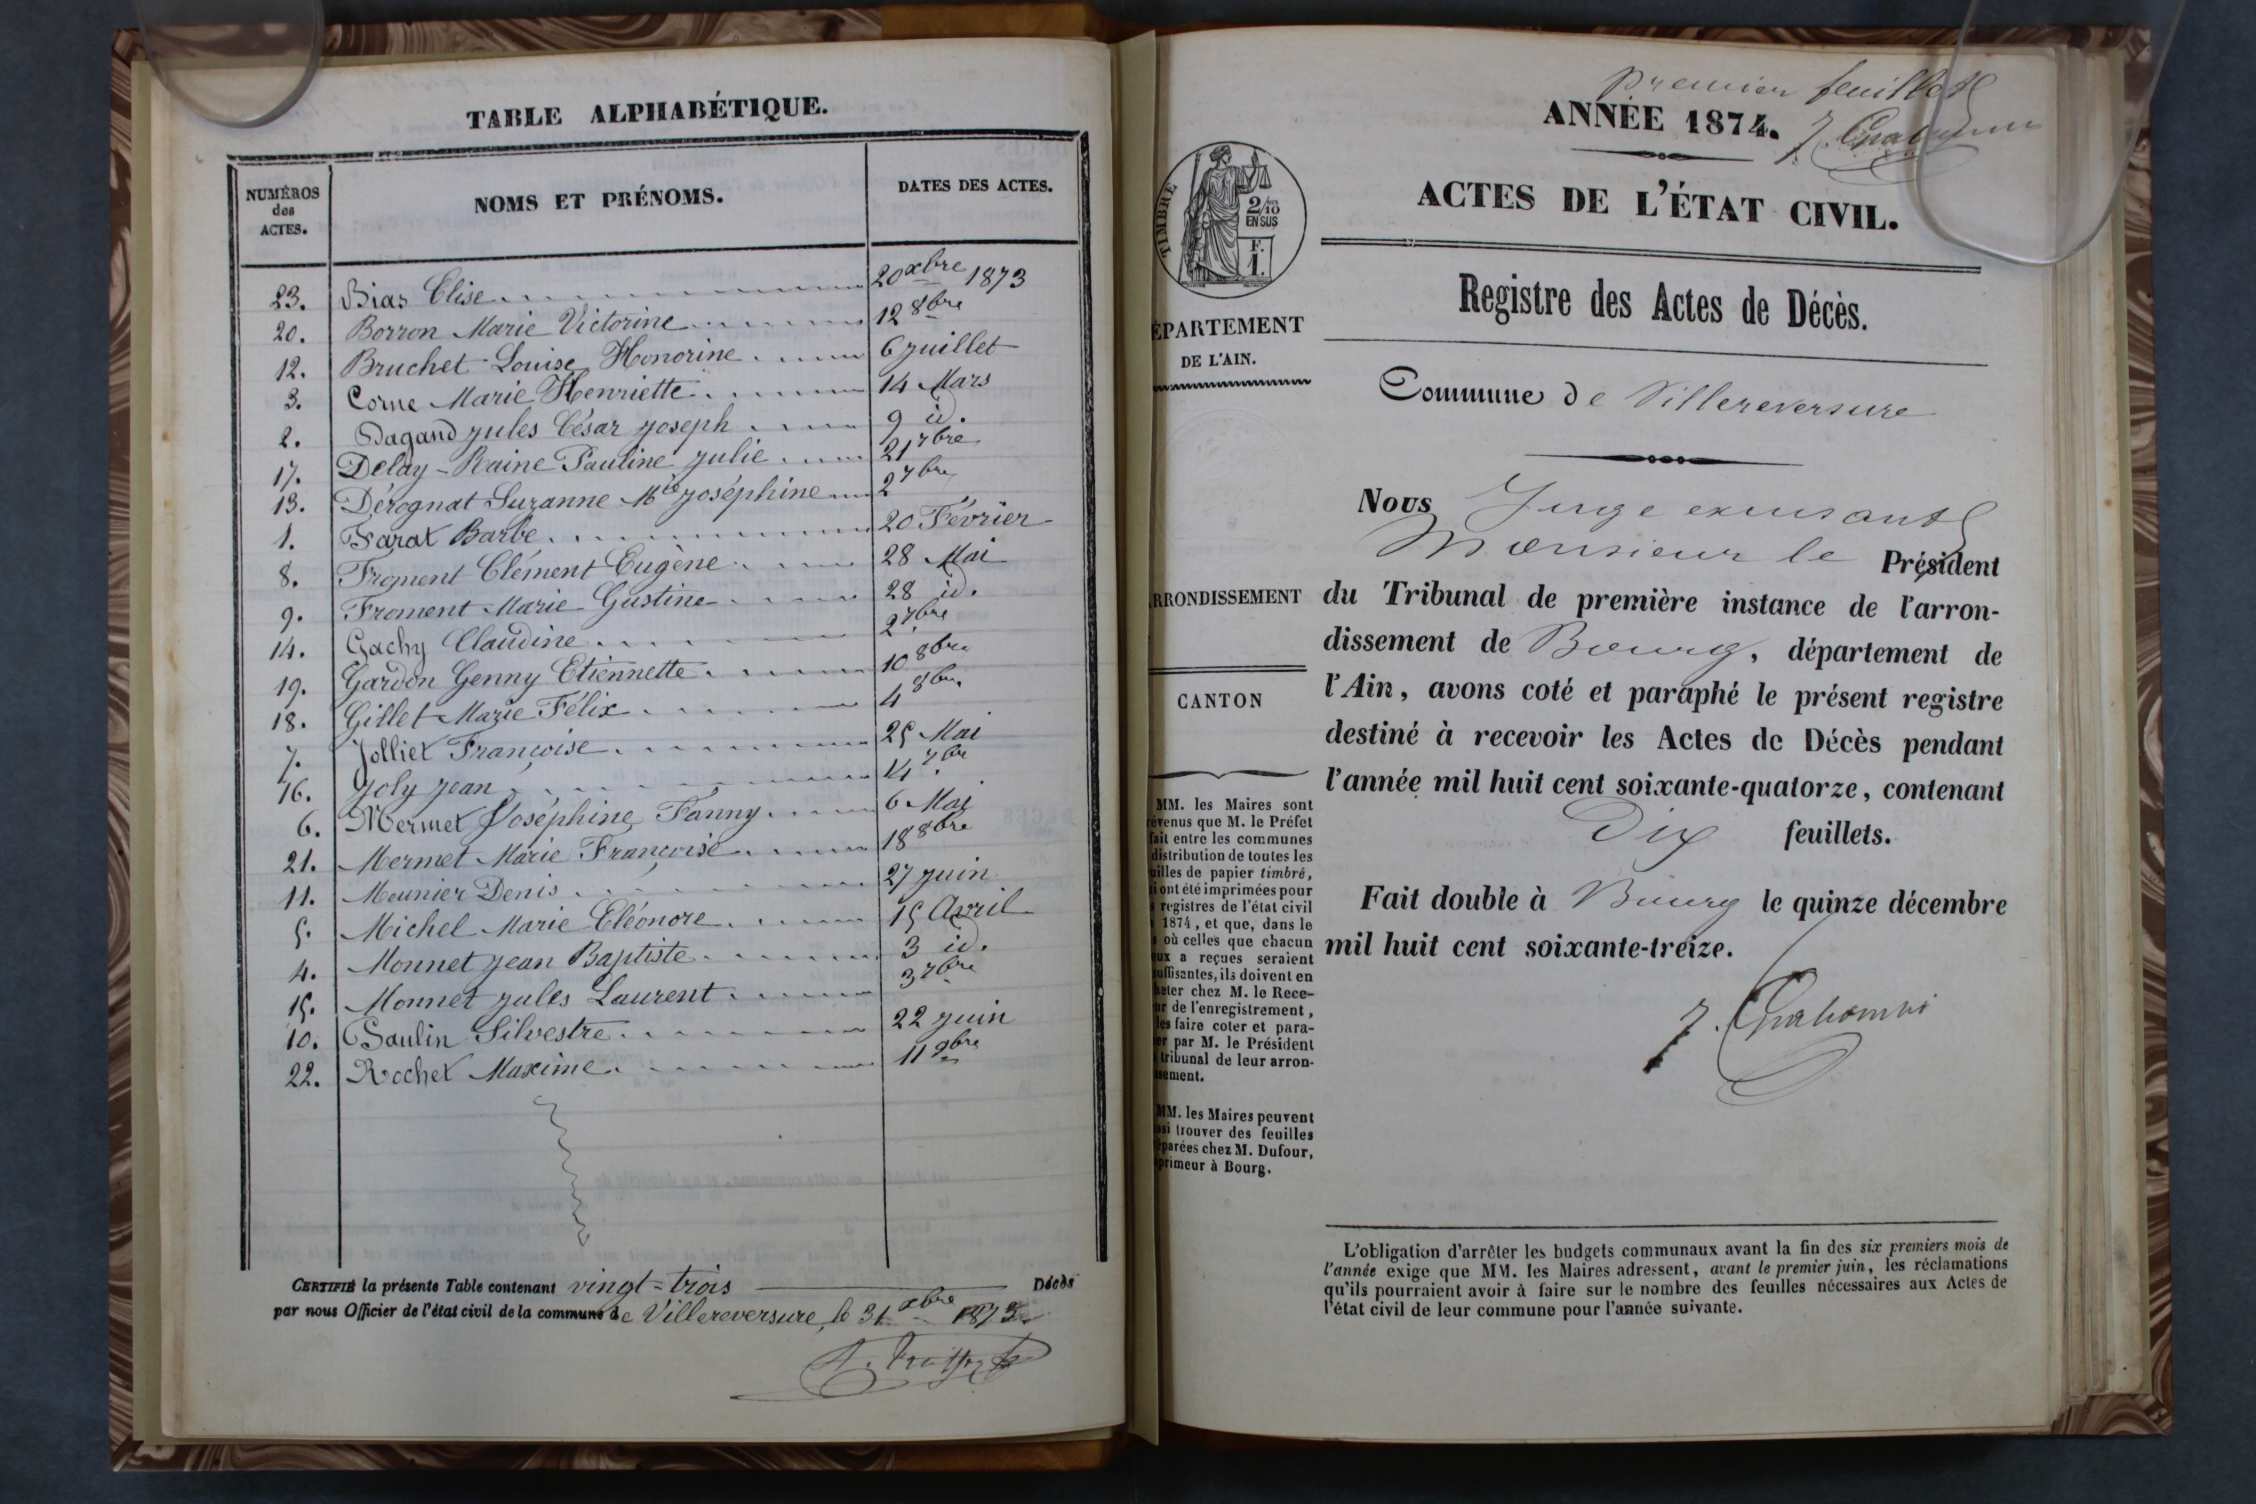 TABLE ALPHABÉTIQUE.
NUMÉROS des ACTES. NOMS ET PRÉNOMS. DATES DES ACTES.
23. Bias Elise 20 xbre 1873
20. Borron Marie Victorine 12 8bre
12. Bruchet Louise Honorine 6 juillet
3. Corne Marie Henriette 14 Mars
2. Dagand jules César joseph 9 id.
17. Delay-Raine Pauline julie 21 7bre
13. Dérognat Suzanne Mie joséphine 2 7bre
1. Farat Barbe 20 Février
8. Froment Clément Eugène 28 Mai
9. Froment Marie Gustine 28 id.
14. Gachy Claudine 2 7bre
19. Gardon Genny Etiennette 10 8bre
18. Gillet Marie Félix 4 8bre
7. Jolliet Françoise 25 Mai
16. Joly jean 14 7bre
6. Mermet Joséphine Fanny 6 Mai
21. Mermet Marie Françoise 18 8bre
11. Meunier Denis 27 juin
5. Michel Marie Eléonore 15 Avril
4. Monnet jean Baptiste 3 id.
15. Monnet jules Laurent 3 7bre
10. Paulin Silvestre 22 juin
22. Rochet Maxime 11 9bre
CERTIFIÉ la présente Table contenant vingt-trois Décès
par nous Officier de l'état civil de la commune de Villereversure, le 31 xbre 1873
premier feuillet
ANNÉE 1874.
ACTES DE L'ÉTAT CIVIL.
TIMBRE
2/10
EN SUS
F.
1.
Registre des Actes de Décès.
ÉPARTEMENT
DE L'AIN.
Commune de Villereversure
Nous Juge
Monsieur le Président
RRONDISSEMENT
du Tribunal de première instance de l'arron-
dissement de Bourg, département de
l'Ain, avons coté et paraphé le présent registre
destiné à recevoir les Actes de Décès pendant
l'année mil huit cent soixante-quatorze, contenant
Dix feuillets.
Fait double à Bourg le quinze décembre
mil huit cent soixante-treize.
CANTON
MM. les Maires sont
évenus que M. le Préfet
fait entre les communes
distribution de toutes les
uilles de papier timbré,
i ont été imprimées pour
registres de l'état civil
1874, et que, dans le
où celles que chacun
ux a reçues seraient
uffisantes, ils doivent en
heter chez M. le Rece-
ur de l'enregistrement,
les faire coter et para-
er par M. le Président
tribunal de leur arron-
sement.
MM. les Maires peuvent
si trouver des feuilles
éparées chez M. Dufour,
primeur à Bourg.
L'obligation d'arrêter les budgets communaux avant la fin des six premiers mois de
l'année exige que MM. les Maires adressent, avant le premier juin, les réclamations
qu'ils pourraient avoir à faire sur le nombre des feuilles nécessaires aux Actes de
l'état civil de leur commune pour l'année suivante.